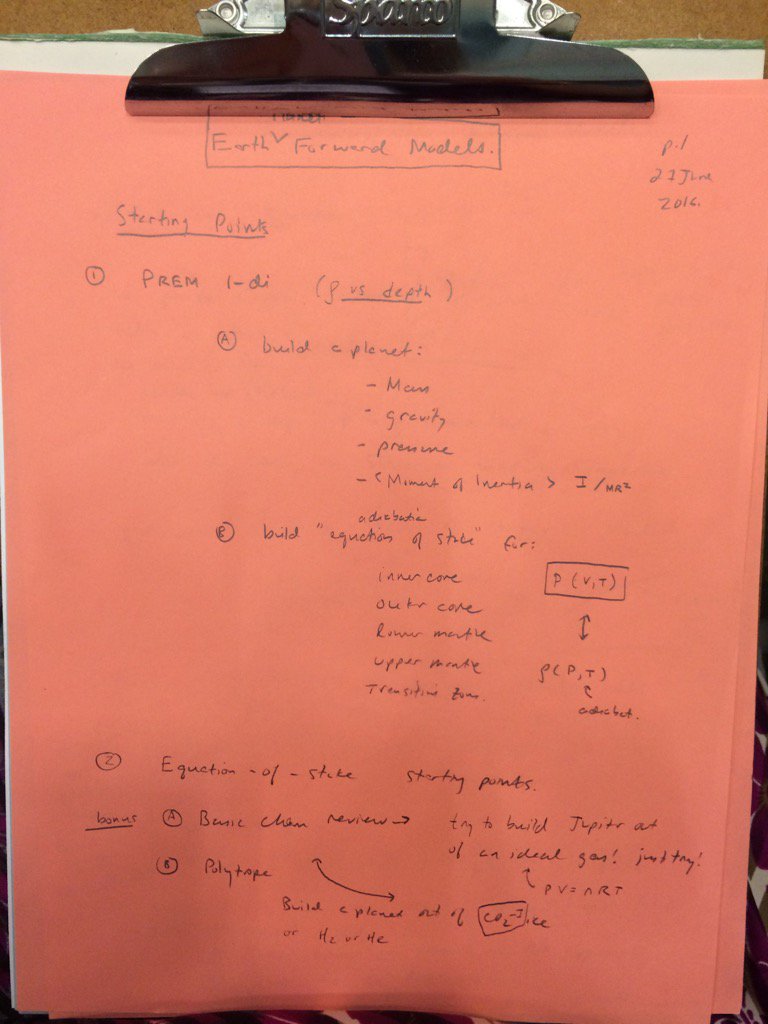 Sparco
Planet
Earth ∨ Forward Models.
p.1
21 June
2016.
Starting Points
① PREM 1-di (ρ vs depth)
Ⓐ build a planet:
- Mass
- gravity
- pressure
- < Moment of Inertia > I/MR²
adiabatic
Ⓑ build "equation of state" for:
inner core P(V,T)
outer core ↕
lower mantle
upper mantle ρ(P,T)
Transition zone. adiabat.
② Equation-of-state starting points.
bonus Ⓐ Basic chem review → try to build Jupiter out
of an ideal gas! just try!
Ⓑ Polytrope PV=nRT
Build a planet out of CO₂-I ice
or H₂ or He